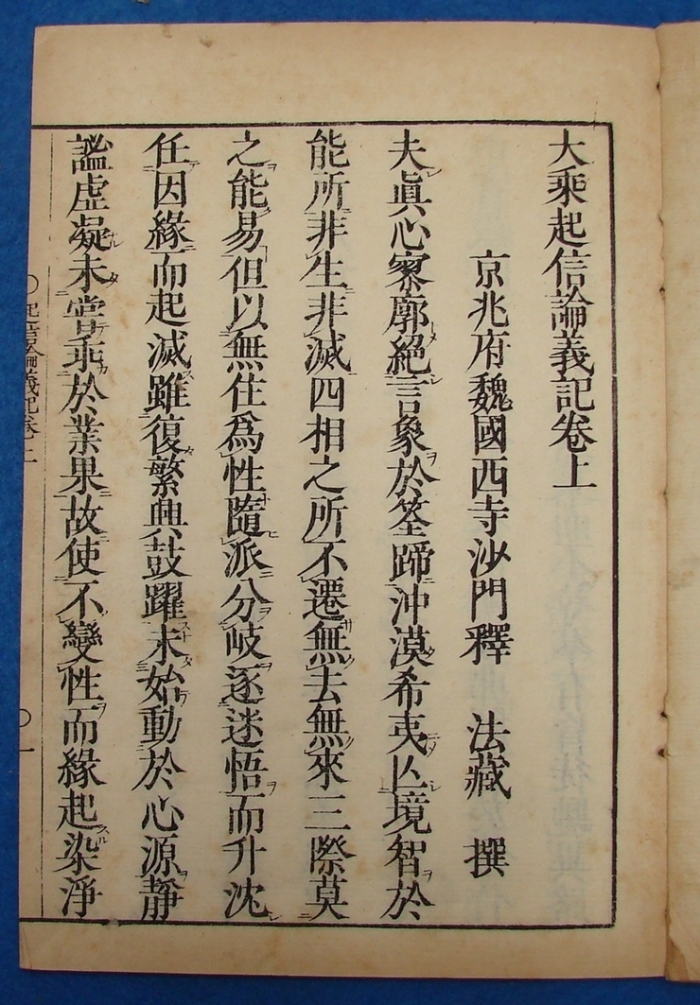 大乘起信論義記卷上
京兆府魏國西寺沙門釋　法藏　撰
夫眞心寥廓絶言象於筌蹄沖漠希夷亡境智於
能所非生非滅四相之所不遷無去無來三際莫
之能易但以無住爲性隨派分岐逐迷悟而升沈
任因緣而起滅雖復繁興鼓躍未始動於心源靜
謐虛凝未嘗乖於業果故使不變性而緣起染淨